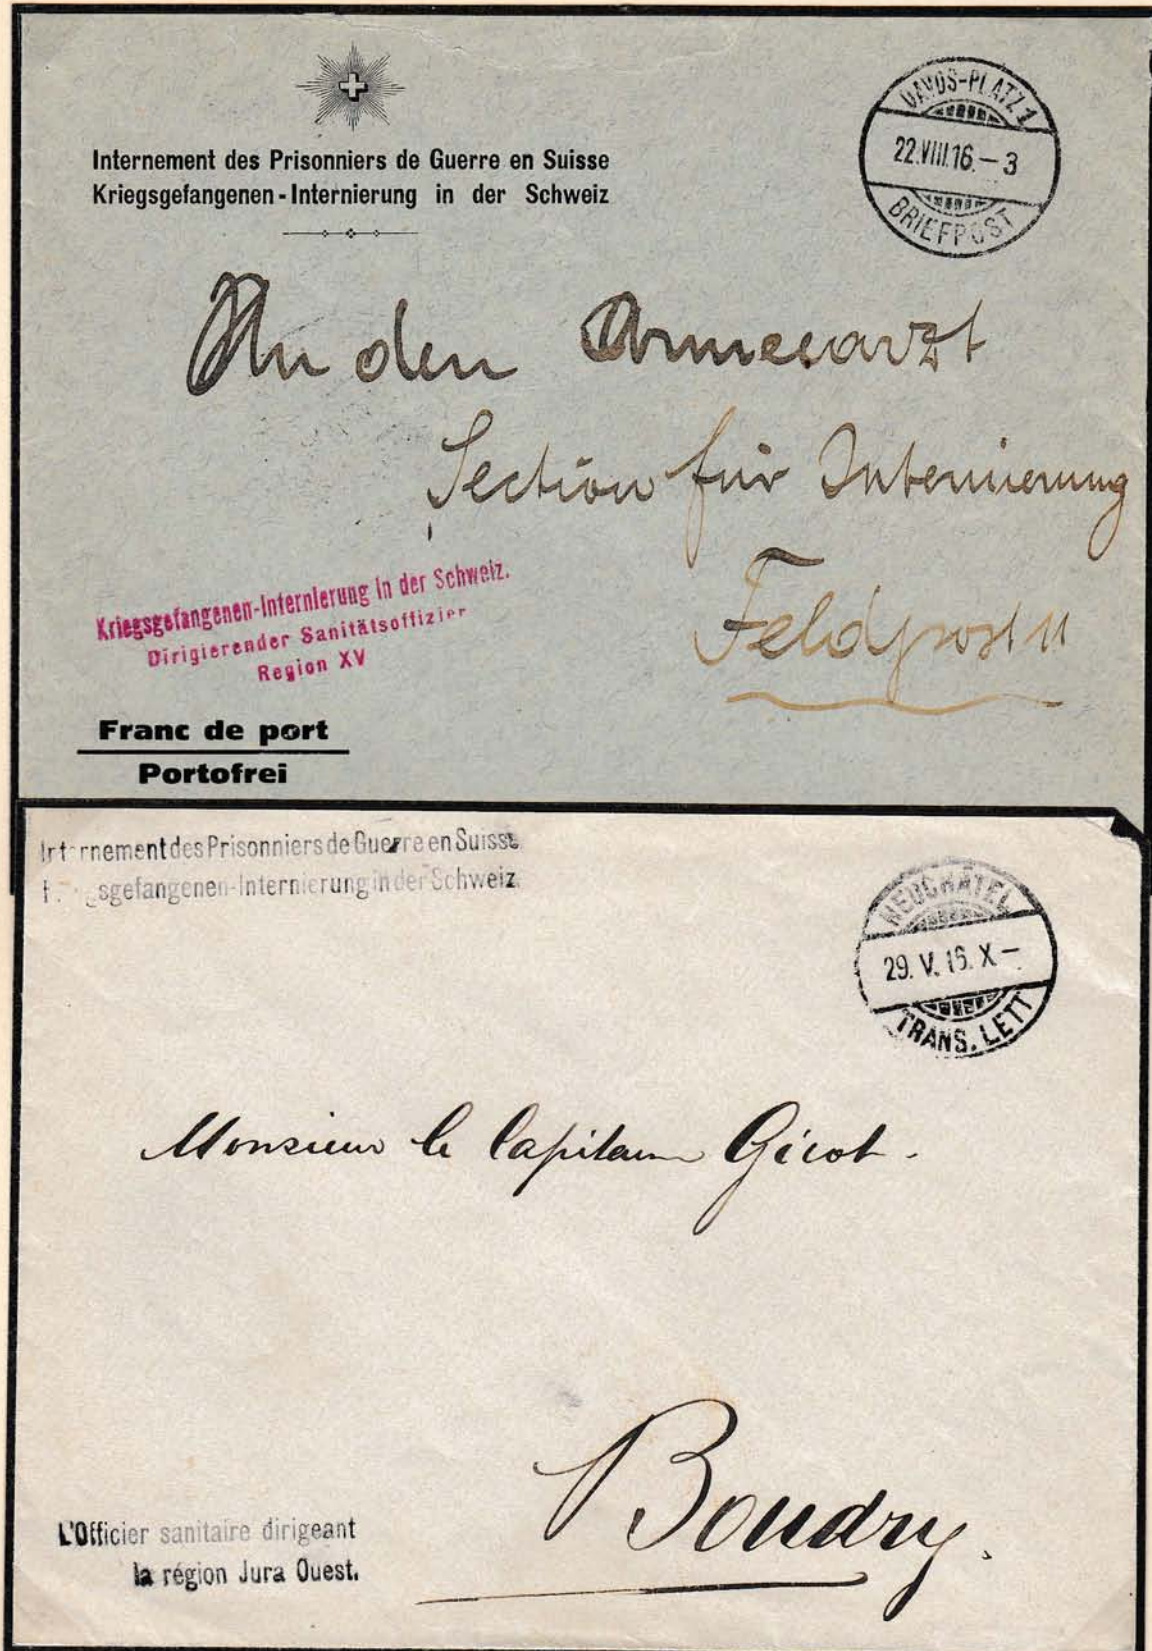 Internement des Prisonniers de Guerre en Suisse
Kriegsgefangenen-Internierung in der Schweiz
DAVOS-PLATZ 1
22.VIII.16.–3
BRIEFPOST
An den Armeearzt
Section für Internierung
Feldpost 11
Kriegsgefangenen-Internierung in der Schweiz.
Dirigierender Sanitätsoffizier
Region XV
Franc de port
Portofrei
Internement des Prisonniers de Guerre en Suisse
Kriegsgefangenen-Internierung in der Schweiz.
NEUCHÂTEL
29. V. 16. X –
TRANS. LETT
Monsieur le Capitaine Gicot.
Boudry.
L'Officier sanitaire dirigeant
la région Jura Ouest.